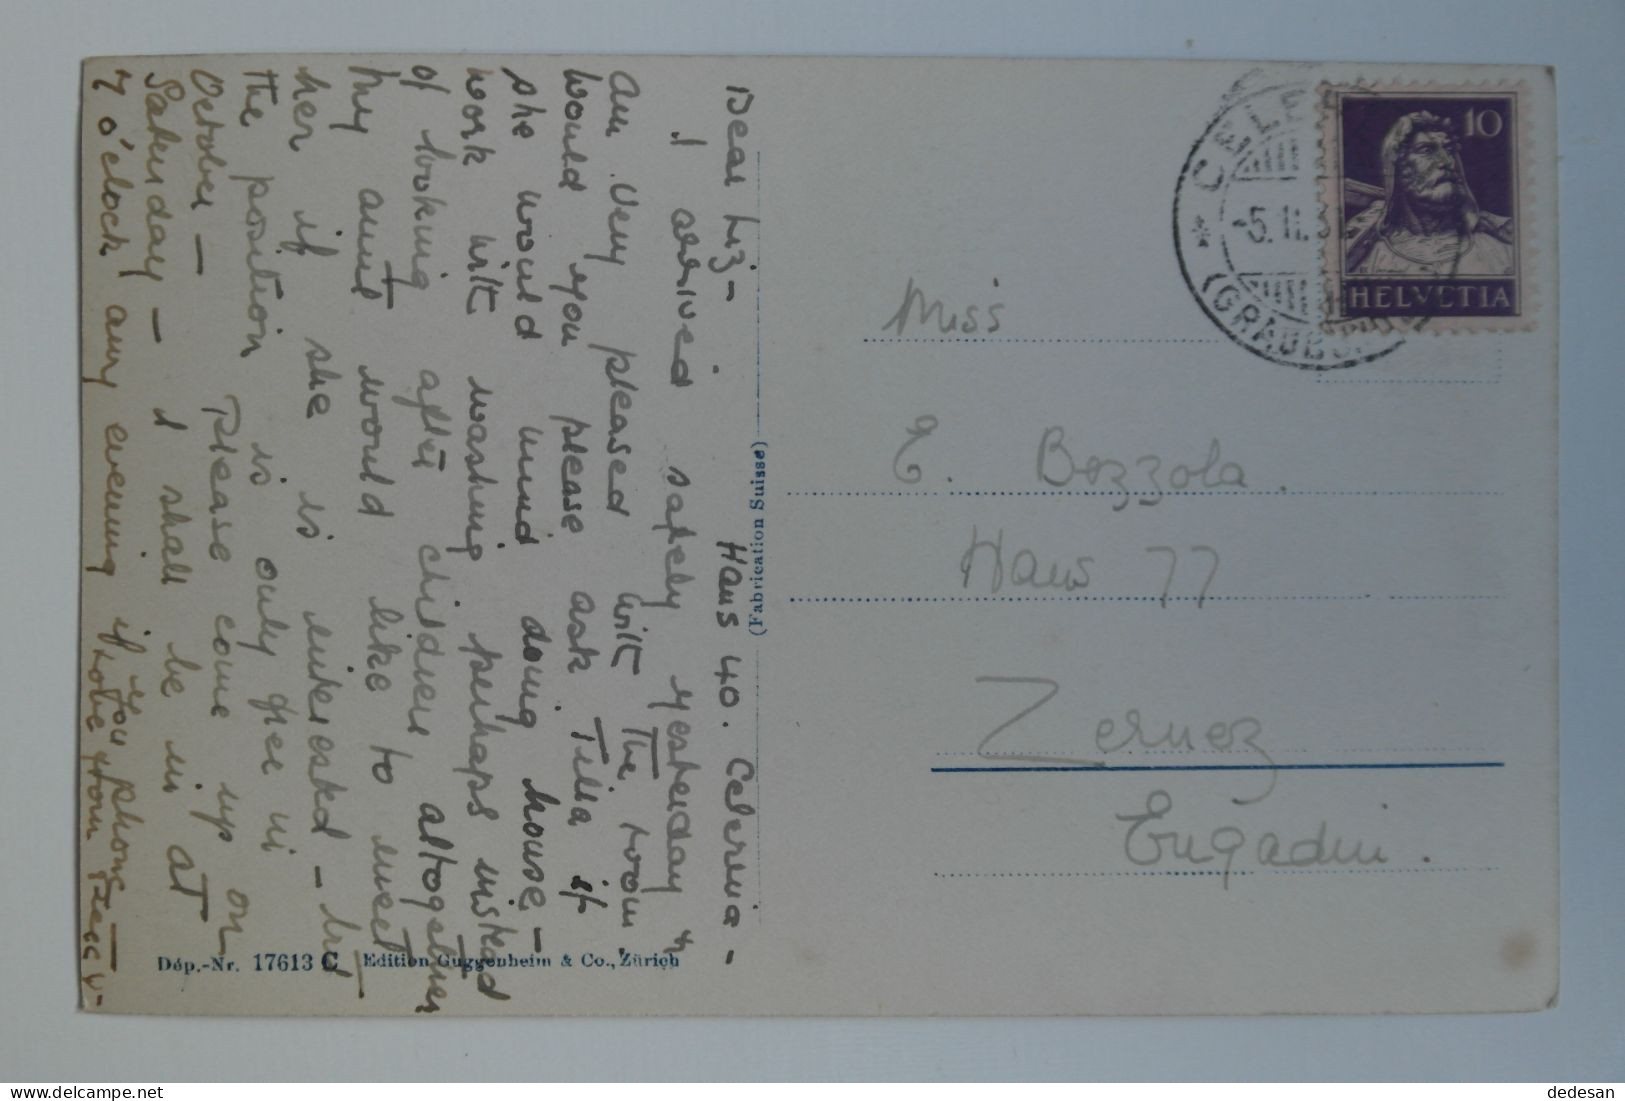 Haus 40. Celerina -
Dear Liz -
I arrived safely yesterday &
am very pleased with the room
Would you please ask Tilia if
she would mind doing house -
work with washing perhaps instead
of looking after children altogether
My aunt would like to meet
her if she is interested - but
the position is only free in
October - Please come up on
Saturday - I shall be in at
7 o'clock any evening if you phone -
Love from
Miss
E. Bozzola.
Haus 77
Zernez
Engadin.
(Fabrication Suisse)
Dép.-Nr. 17613 C Edition Guggenheim & Co., Zürich
10
HELVETIA
5.II.3
dedesan